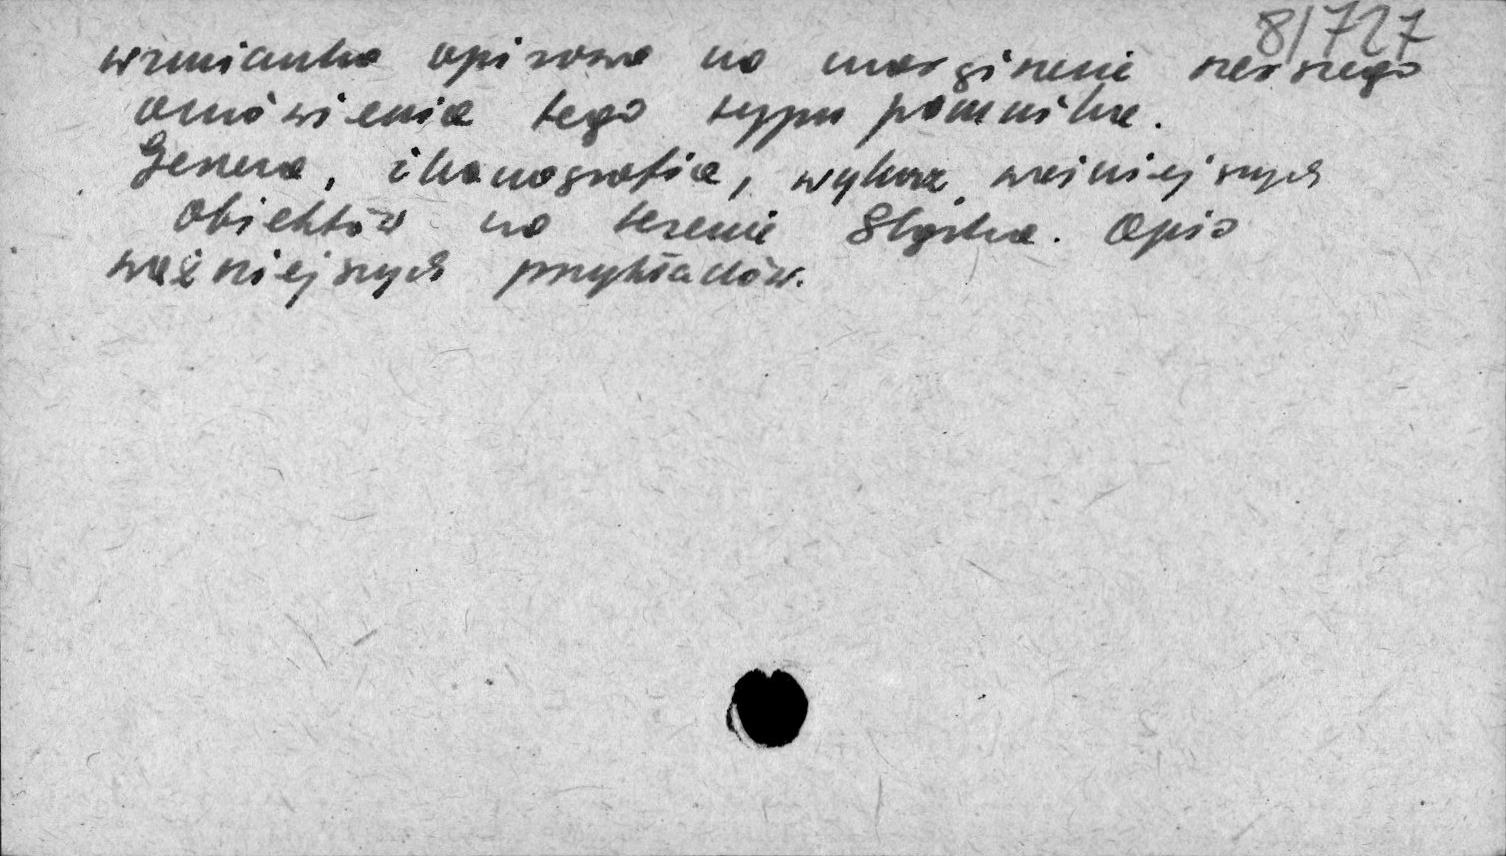 8/727
wzmianka opisowa na marginesie szerszego
omówienia tego typu pomnika.
Geneza, ikonografia, wykaz ważniejszych
obiektów na terenie Śląska. Opis
ważniejszych przykładów.